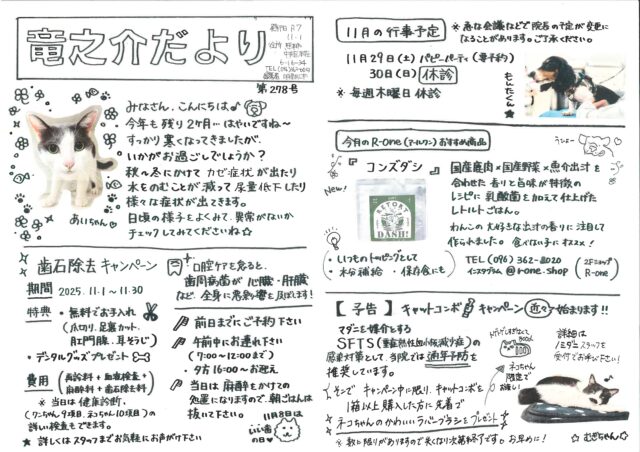 竜之介だより
R7
11.1
TEL(096)
第278号
みなさん、こんにちは♪
今年も残り2ヶ月…はやいですね〜
すっかり寒くなってきましたが、
いかがお過ごしでしょうか？
秋〜冬にかけてカゼ症状が出たり
水をのむことが減って尿量低下したり
様々な症状が出てきます。
日頃の様子をよくみて、異常がないか
チェックしてみてくださいね☆
あいちゃん♡
歯石除去キャンペーン
期間 2025.11.1〜11.30
特典 ・無料でお手入れ
(爪切り、足裏カット、
肛門腺、耳そうじ)
・デンタルグッズプレゼント
費用 (再診料+血液検査+
麻酔料+歯石除去料)
※当日は健康診断、
(ワンちゃん9項目、ネコちゃん10項目)の
詳しい検査もできます。
★詳しくはスタッフまでお気軽にお声がけ下さい
口腔ケアを怠ると、
歯周病菌が心臓・肝臓
など、全身に悪影響を及ぼします!
前日までにご予約下さい
午前中にお連れ下さい
(9:00〜12:00まで)
・夕方16:00〜お迎え
当日は麻酔をかけての
処置になりますので、朝ごはんは
抜いて下さい。
11月8日は
いい歯
の日♥
11月の行事予定
※急な会議などで院長の予定が変更に
なることがあります。ご了承ください。
11月29日(土) パピーパーティ(要予約)
30日(日) 休診
※毎週木曜日休診
もんたくん★
今月のR-one(アールワン)おすすめ商品
『コンズダシ』
New!
RETORT
DASHI
国産鹿肉×国産野菜×魚介出汁を
合わせた香りと旨味が特徴の
レシピに乳酸菌を加えて仕上げた
レトルトごはん。
わんこの大好きな出汁の香りに注目して
作られました。食べない子にもオススメ!
・いつものトッピングとして
・水分補給 ・保存食にも
TEL(096)362-8020
インスタグラム @r-one.shop
2Fショップ
R-one
【予告】キャットコンボキャンペーン近々始まります!!
マダニを媒介とする
SFTS(重症熱性血小板減少症)の
感染対策として、当院では通年予防を
推奨しています。
そこで キャンペーン中に限り、キャットコンボを
1箱以上購入した方に先着で
ネコちゃんのかわいいラバーブラシをプレゼント
※数に限りがありますので無くなり次第終了です。お早めに!
ネコちゃん
限定で
お渡し!
詳細は
スタッフを
受付でお呼び下さい!
☆むぎちゃん☆